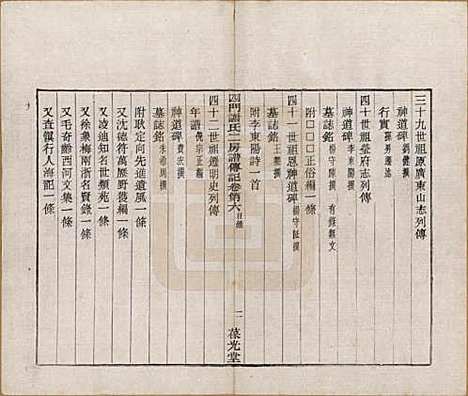 三十九世祖原廣東山志列傳
神道碑 劉健撰
行實 孫男遷述
四十世祖瑩府志列傳
神道碑 李東陽撰
墓誌銘 楊守陳撰 有錄無文
附□□□□正俗編一條
四十一世祖恩神道碑 楊守阯撰
墓誌銘 王鏊撰
附李東陽詩一首
四門謝氏二房譜傳記卷第六 目錄 二 葆光堂
四十二世祖遷明史列傳
年譜 倪宗正編
神道碑 費宏撰
墓誌銘 朱希周撰
附耿定向先進遺風一條
又沈德符萬歷野獲編一條
又凌迪知名世類苑一條
又徐象梅兩浙名賢錄一條
又毛奇齡西河文集一條
又查繼行人海記一條